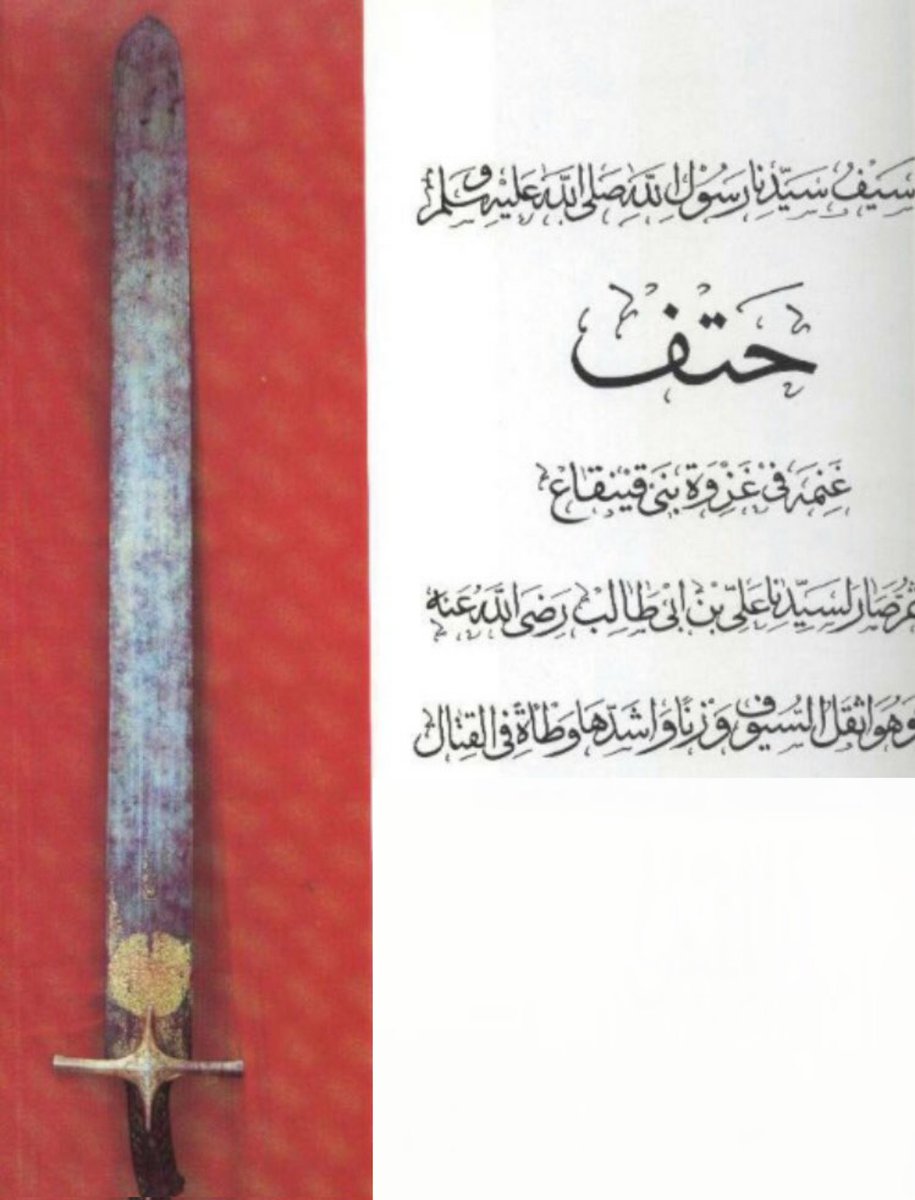 سَيْفُ سَيِّدِنَا رَسُوْلِ اللَّهِ صَلَى اللَّهُ عَلَيْهِ وَسَلَّمَ
حَتْف
غَنِمَهُ فِي غَزْوَةِ بَنِي قَيْنِقَاع
ثُمَّ صَارَ لِسَيِّدِنَا عَلِيِّ بْنِ ابِي طَالِب رَضِيَ اللَّهُ عَنْهُ
وَهُوَ اثْقَلُ السُيُوفِ وَزْنًا وَاشَدِّهَا وَطْأَةً فِي القِتَال